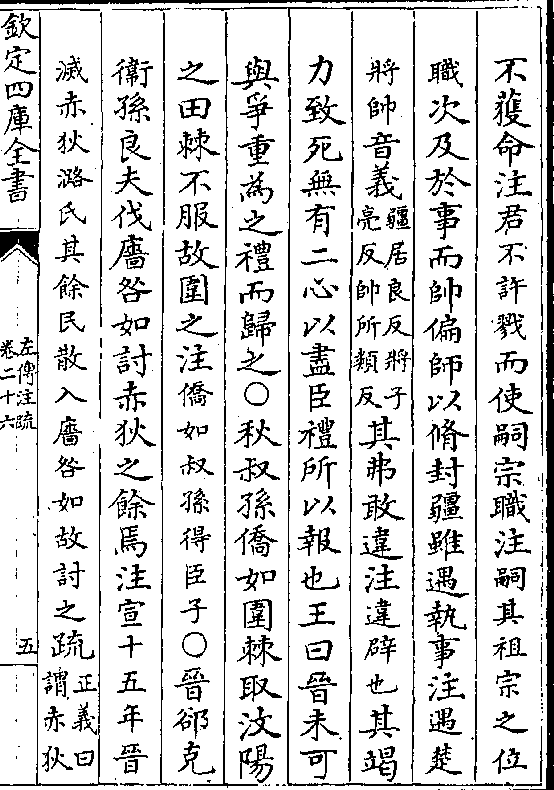 不獲命注君不許戮而使嗣宗職注嗣其祖宗之位
職次及於事而帥偏師以脩封疆雖遇執事注遇楚
將帥音義疆居良反將子
亮反帥所類反其弗敢違注違辟也其竭
力致死無有二心以盡臣禮所以報也王曰晉未可
與爭重為之禮而歸之○秋叔孫僑如圍棘取汶陽
之田棘不服故圍之注僑如叔孫得臣子○晉郤克
衛孫良夫伐廧咎如討赤狄之餘焉注宣十五年晉
滅赤狄潞氏其餘民散入廧咎如故討之疏正義曰
謂赤狄
欽定四庫全書
左傳注疏
卷二十六
五